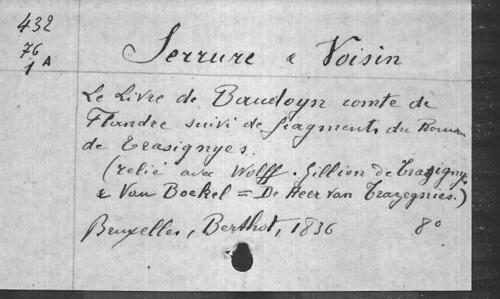 432
76
1 A
Serrure & Voisin
Le Livre de Baudoyn comte de
Flandre suivi de fragments du Roman
de Trasignyes.
(relié avec Wolff. Gillion de Trasigny
& Van Boekel = De Heer van Trazegnies.)
Bruxelles, Berthot, 1836 8°